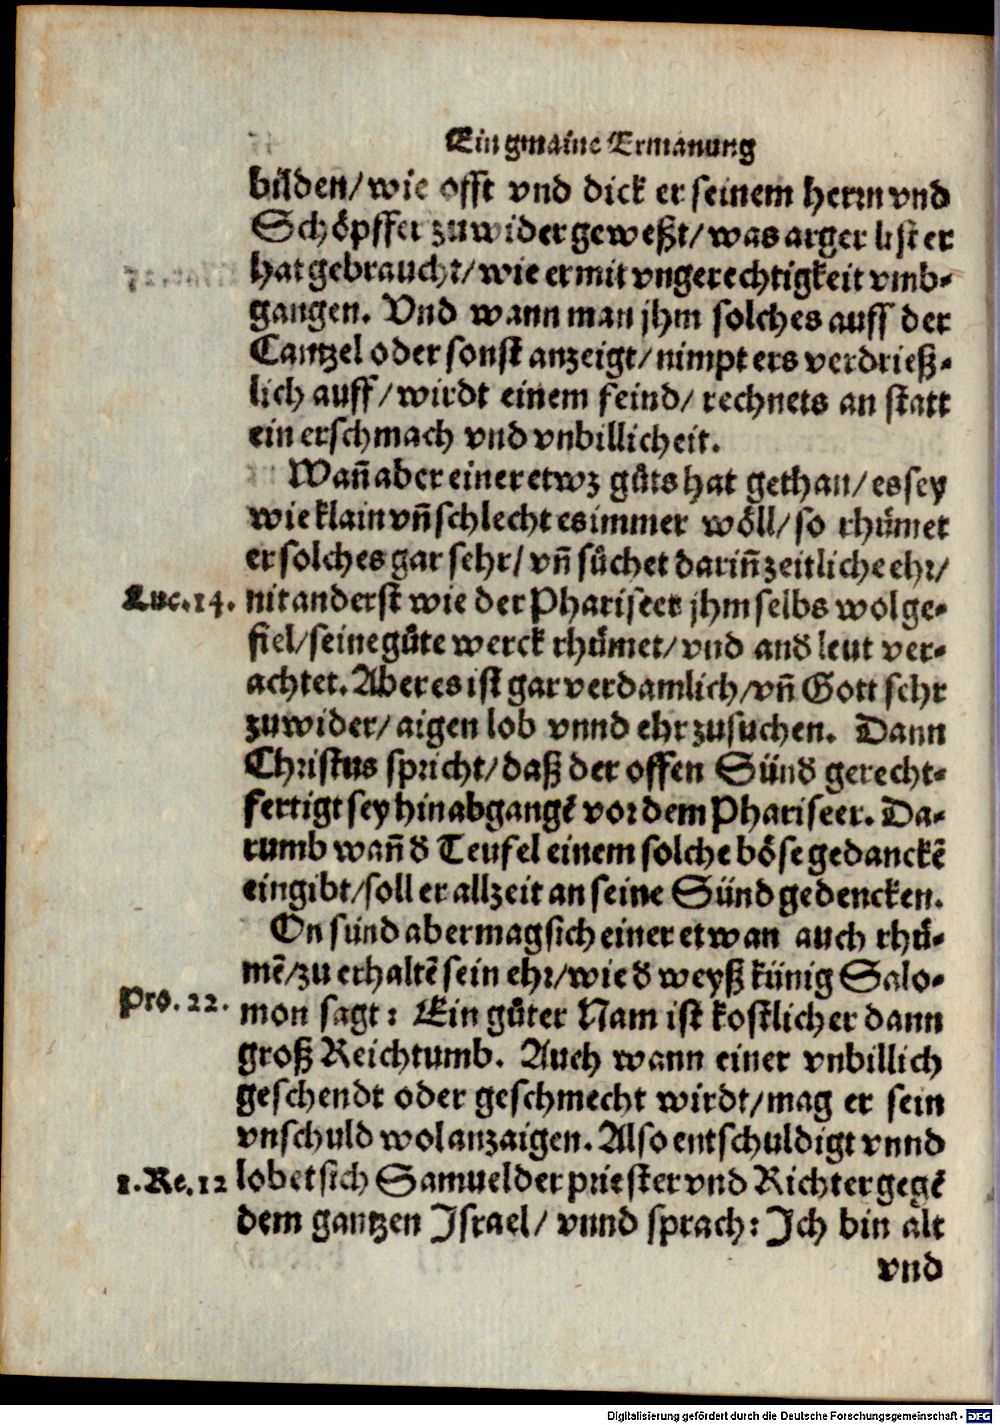 Ein gmaine Ermanung
bilden/ wie offt vnd dick er seinem herrn vnd
Schöpffer zuwider geweßt/ was arger list er
hat gebraucht/ wie er mit vngerechtigkeit vmb⸗
gangen. Vnd wann man jhm solches auff der
Cantzel oder sonst anzeigt/ nimpt ers verdrieß⸗
lich auff/ wirdt einem feind/ rechnets an statt
ein er schmach vnd vnbillicheit.
Wañ aber einer etwz gůts hat gethan/ es sey
wie klain vñ schlecht es immer wöll/ so rhůmet
er solches gar sehr/ vñ sůchet dariñ zeitliche ehr/
Luc.14. nit anderst wie der Phariseer jhm selbs wolge⸗
fiel/ seine gůte werck rhůmet/ vnd and̕ leut ver⸗
achtet. Aber es ist gar verdamlich/ vñ Gott sehr
zuwider/ aigen lob vnnd ehr zusuchen. Dann
Christus spricht/ daß der offen Sünd̕ gerecht⸗
fertigt sey hinabgangē vor dem Phariseer. Da⸗
rumb wañ d̕ Teufel einem solche böse gedanckē
eingibt/ soll er allzeit an seine Sünd gedencken.
On sünd aber mag sich einer etwan auch rhů⸗
mē/ zu erhaltē sein ehr/ wie d̕ weyß künig Salo⸗
Pro. 22. mon sagt: Ein gůter Nam ist kostlicher dann
groß Reichtumb. Auch wann einer vnbillich
geschendt oder geschmecht wirdt/ mag er sein
vnschuld wol anzaigen. Also entschuldigt vnnd
1. Re. 12 lobet sich Samuel der priester vnd Richter gegē
dem gantzen Israel/ vnnd sprach: Ich bin alt
vnd
Digitalisierung gefördert durch die Deutsche Forschungsgemeinschaft - DFG